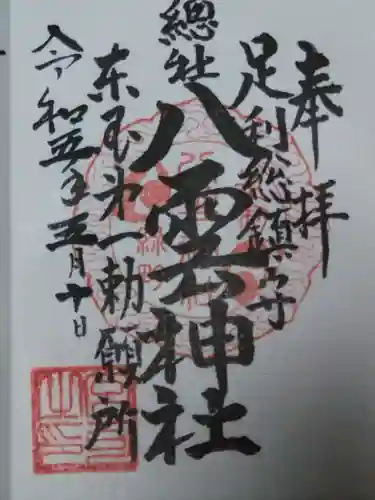 奉拝
足利総鎮守
總社
八雲神社
東国第一勅願所
令和五年五月十日
緑町